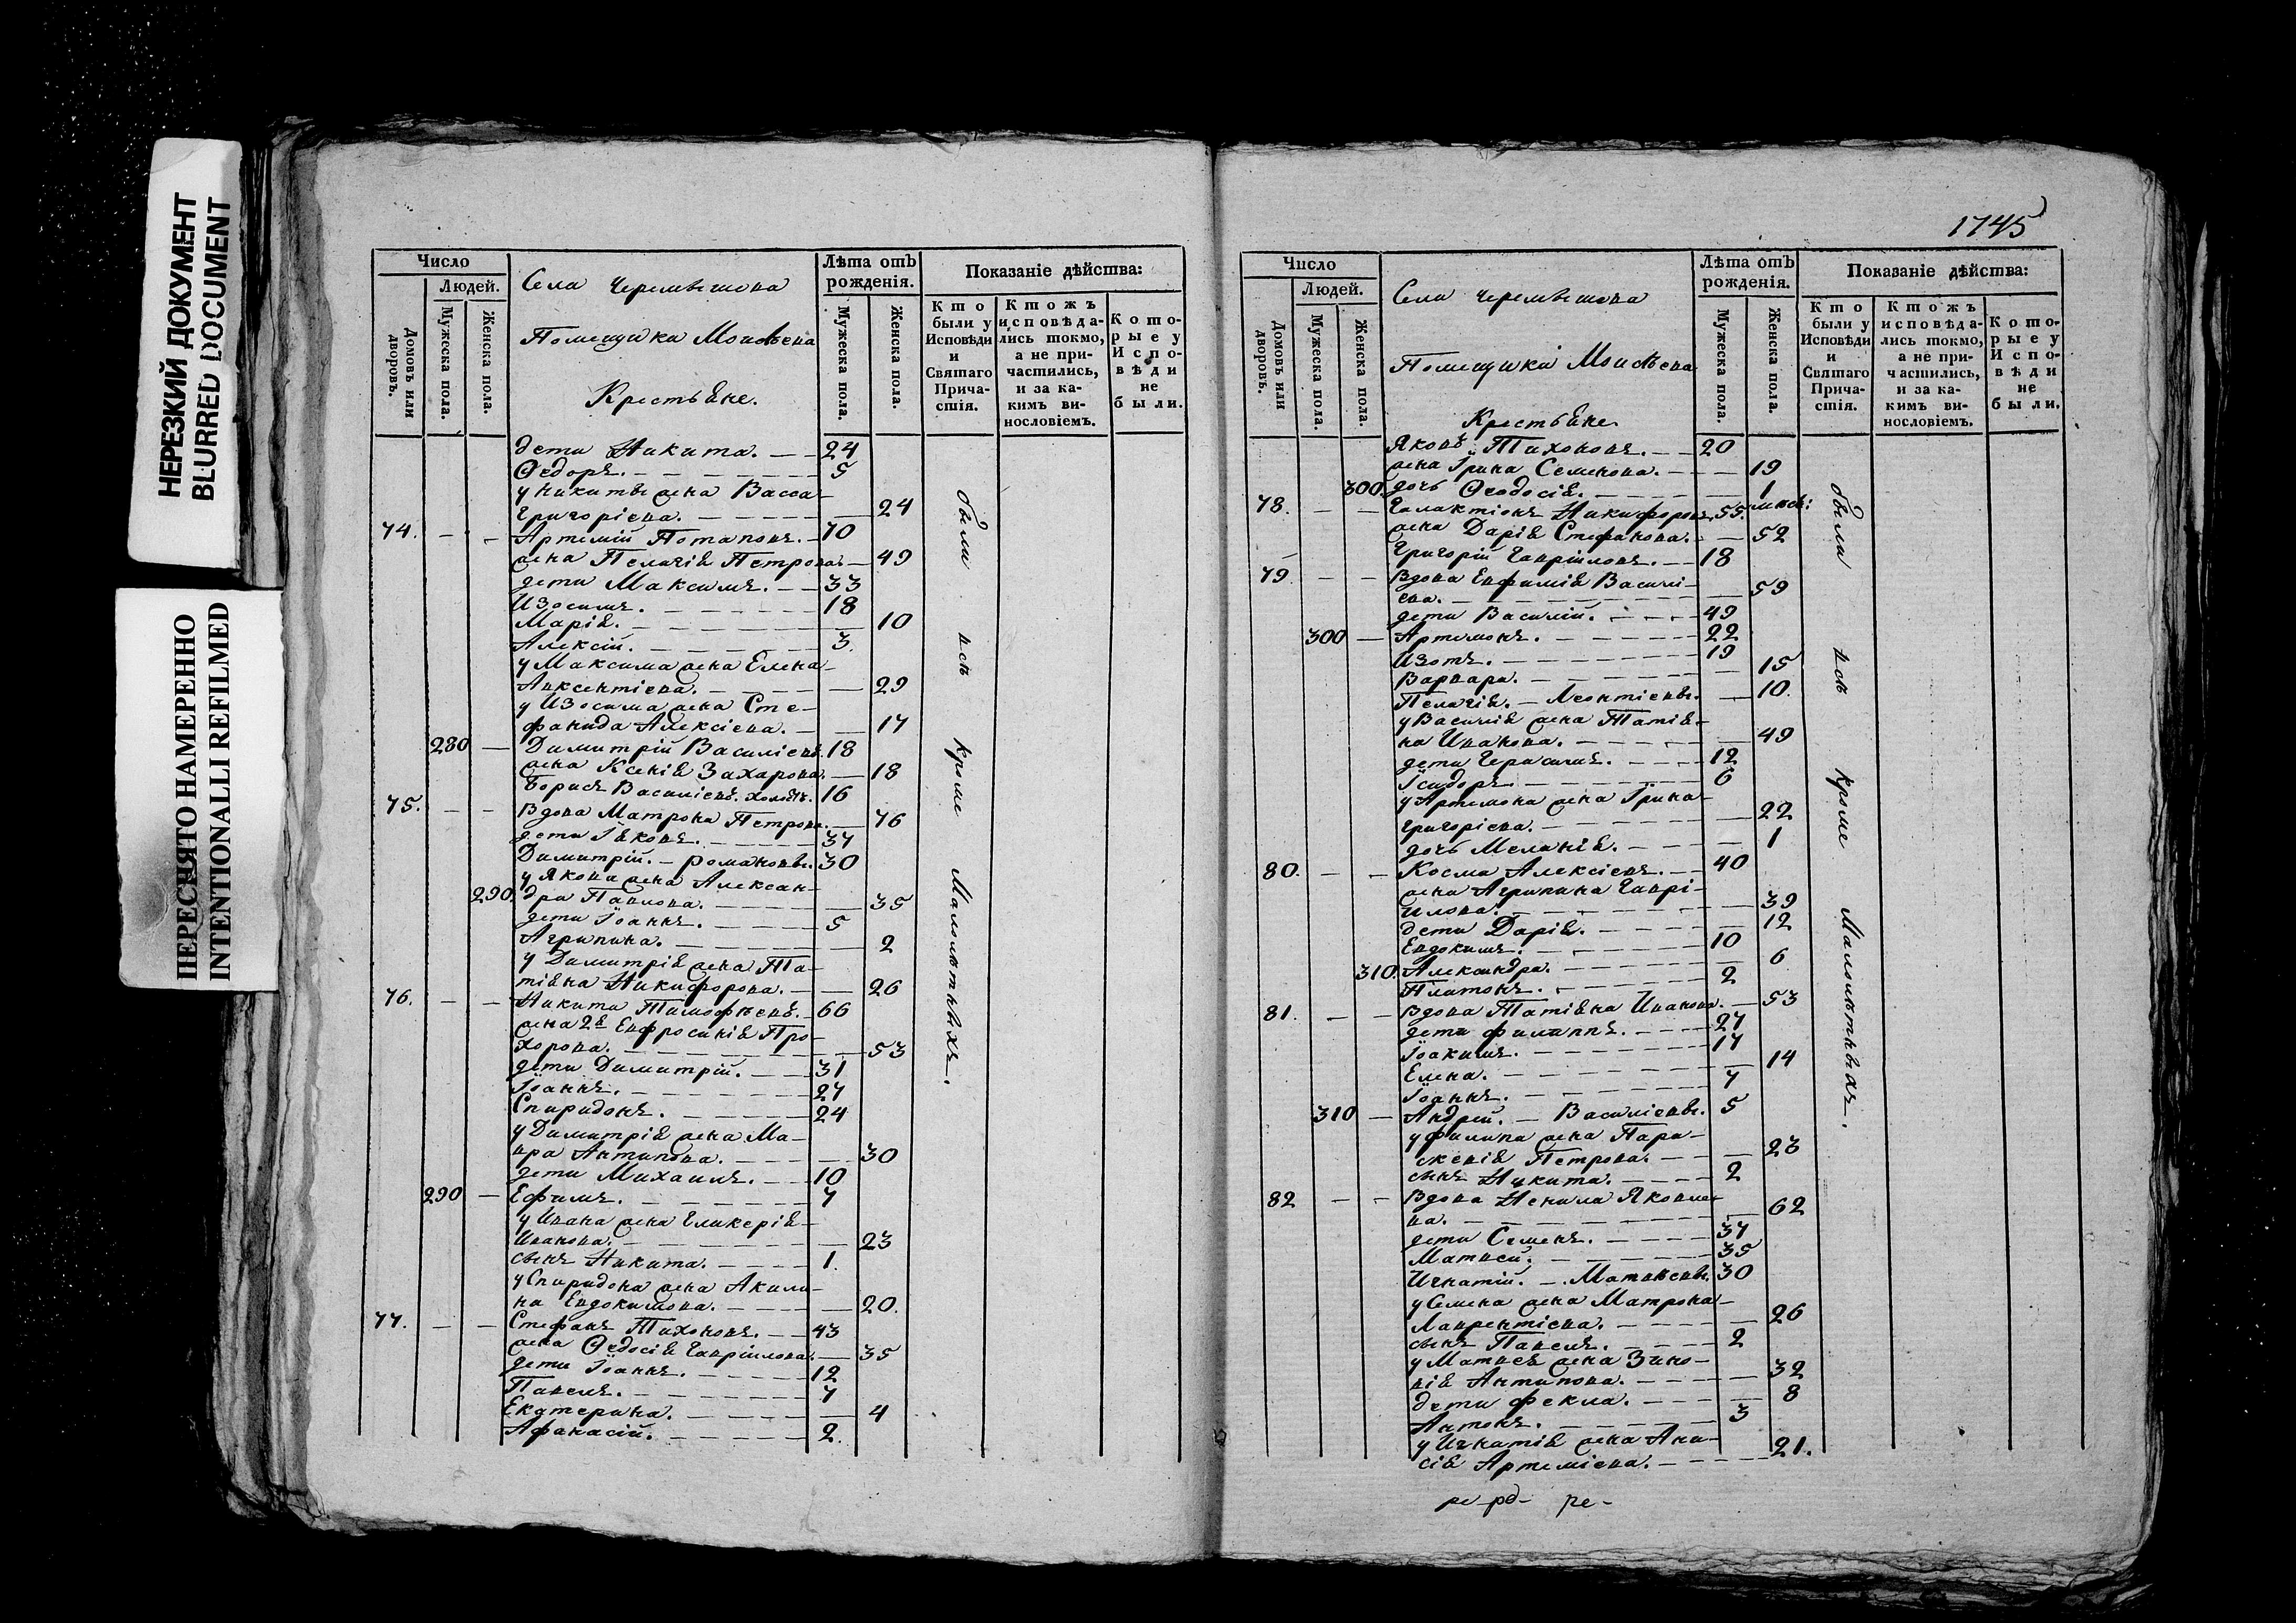 НЕРЕЗКИЙ ДОКУМЕНТ
BLURRED DOCUMENT
ПЕРЕСНЯТО НАМЕРЕННО
INTENTIONALLI REFILMED
Число
Людей.
Домовъ или дворовъ.
Мужеска пола.
Женска пола.
Села
Помещика Моисѣева
Крестьѣне.
Лѣта отъ рождения.
Мужеска пола.
Женска пола.
Показаніе дѣйства:
Кто были у Исповѣди и Святаго Причастія.
Ктожъ исповѣдались токмо, а не причастились, и за какимъ винословіемъ.
Которые у Исповѣди не были.
дети Никита. 24
Ѳедоръ. 5
у Никиты жена Васса
Григоріева. 24
74. Артемій Потаповъ. 70
жена Пелагіѣ Петрова 49
дети Максимъ. 33
Изосимъ. 18
Маріѣ. 10
Алексій. 3
у Максима жена Елена
Авксентіева. 29
у Изосима жена Сте-
фанида Алексіева. 17
280 Димитрій Василіевъ. 18
жена Ксеніѣ Захарова. 18
Борисъ Василіевъ. холостъ. 16
75. Вдова Матрона Петрова. 76
дети Іѣковъ. 37
Димитрій. романовы. 30
у Якова жена Алексан-
290. дра Павлова. 35
дети Іоаннъ. 5
Агрипина. 2
у Димитріѣ жена Та-
тіѣна Никифорова. 26
76. Никита Тимофѣевъ. 66
жена 2ѣ Евфросиніѣ Про-
хорова. 53
дети Димитрій. 31
Іоаннъ. 27
Спиридонъ. 24
у Димитріѣ жена Ма-
вра Антипова. 30
дети Михаилъ. 10
290 Ефимъ. 7
у Ивана жена Гликеріѣ
Иванова. 23
сынъ Никита. 1.
у Спиридона жена Акили-
на Евдокимова. 20.
77. Стефанъ Тихоновъ. 43
жена Ѳедосіѣ Гавріилова. 35
дети Іоаннъ. 12
Павелъ. 7
Екатерина. 4
Афанасій. 2.
были всѣ кроме Малолѣтныхъ.
1745
Число
Людей.
Домовъ или дворовъ.
Мужеска пола.
Женска пола.
Села
Помещика Моисѣева
Крестьѣне.
Лѣта отъ рождения.
Мужеска пола.
Женска пола.
Показаніе дѣйства:
Кто были у Исповѣди и Святаго Причастія.
Ктожъ исповѣдались токмо, а не причастились, и за какимъ винословіемъ.
Которые у Исповѣди не были.
Яковъ Тихоновъ. 20
жена Ірина Семенова. 19
300. дочь Ѳеодосіѣ. 1
78. Галактіонъ Никифоровъ. 55.
жена Даріѣ Стефанова. 52
Григорій Гавріиловъ. 18
79. Вдова Евфиміѣ Василі-
ева. 59
дети Василій. 49
300 Артемонъ. 22
Изотъ. 19
Варвара. 15
Пелагіѣ. Леонтіевы. 10.
у Василіѣ жена Татіѣ-
на Иванова. 49
дети Герасимъ. 12
Ісидоръ. 6
у Артемона жена Ірина
григоріева. 22
дочь Меланіѣ. 1
80. Косма Алексіевъ. 40
жена Агрипина Гаврі-
илова. 39
дети Даріѣ. 12
Евдокимъ. 10
310. Александра. 6
Платонъ. 2
81. Вдова Татіѣна Иванова. 53
дети филиппъ. 27
Іоакимъ. 17
Елена. 14
Іоаннъ. 7
310 Андрей. Василіевы. 5
у филипа жена Пара-
скевіѣ Петрова. 23
сынъ Никита. 2
82 Вдова Ненила Яковле-
ва. 62
дети Семенъ. 37
Матвей. 35
Игнатій. Матвѣевы. 30
у Семена жена Матрона
Лаврентіева. 26
сынъ Павелъ. 2
у Матвеѣ жена Зино-
віѣ Антипова. 32
дети фекла. 8
Антонъ. 3
у Игнатіѣ жена Ана-
сіѣ Артеміева. 21.
были всѣ кроме Малолѣтныхъ.